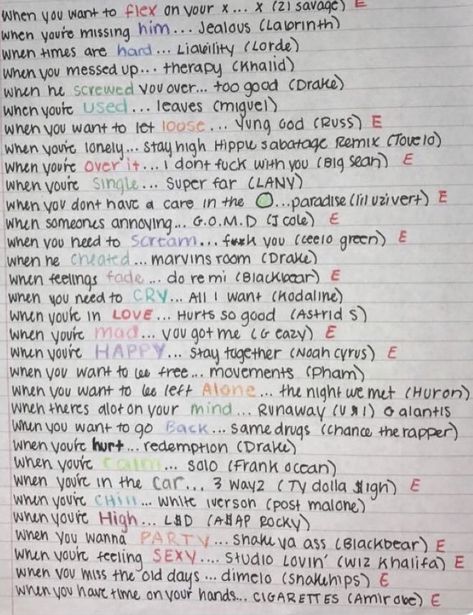 when you want to flex on your x... x (21 savage) E
when you're missing him... Jealous (Labrinth)
when times are hard... Liability (Lorde)
when you messed up... therapy (Khalid)
when he screwed you over... too good (Drake)
when you're used... leaves (miguel)
when you want to let loose... Yung God (Russ) E
when you're lonely... stay high Hippie sabatage Remix (Tove lo)
when you're over it... I dont fuck with you (Big Sean) E
when you're single... super far (LANY)
when you dont have a care in the ... paradise (lil uzi vert) E
when someones annoying... G.O.M.D (J cole) E
when you need to scream... f**k you (ceelo green) E
when he cheated... marvins room (Drake)
when feelings fade... do re mi (Blackbear) E
when you need to CRY... All I want (Kodaline)
when you're in LOVE... Hurts so good (Astrid S)
when you're mad... you got me (G eazy) E
when you're HAPPY... stay together (Noah cyrus) E
when you want to be free... movements (Pham)
when you want to be left Alone... the night we met (Huron)
when theres alot on your mind... Runaway (U & I) Galantis
when you want to go Back... same drugs (chance the rapper)
when you're hurt... redemption (Drake)
when you're calm... solo (Frank ocean)
when you're in the car... 3 wayz (TY dolla $igh) E
when you're CHill... white iverson (post malone)
when you're High... L$D (A$AP Rocky)
when you wanna PARTY... shake ya ass (Blackbear) E
when you're feeling SEXY.... studio Lovin' (Wiz Khalifa) E
when you miss the old days... dimelo (snakehips) E
when you have time on your hands... CIGARETTES (Amir obe) E